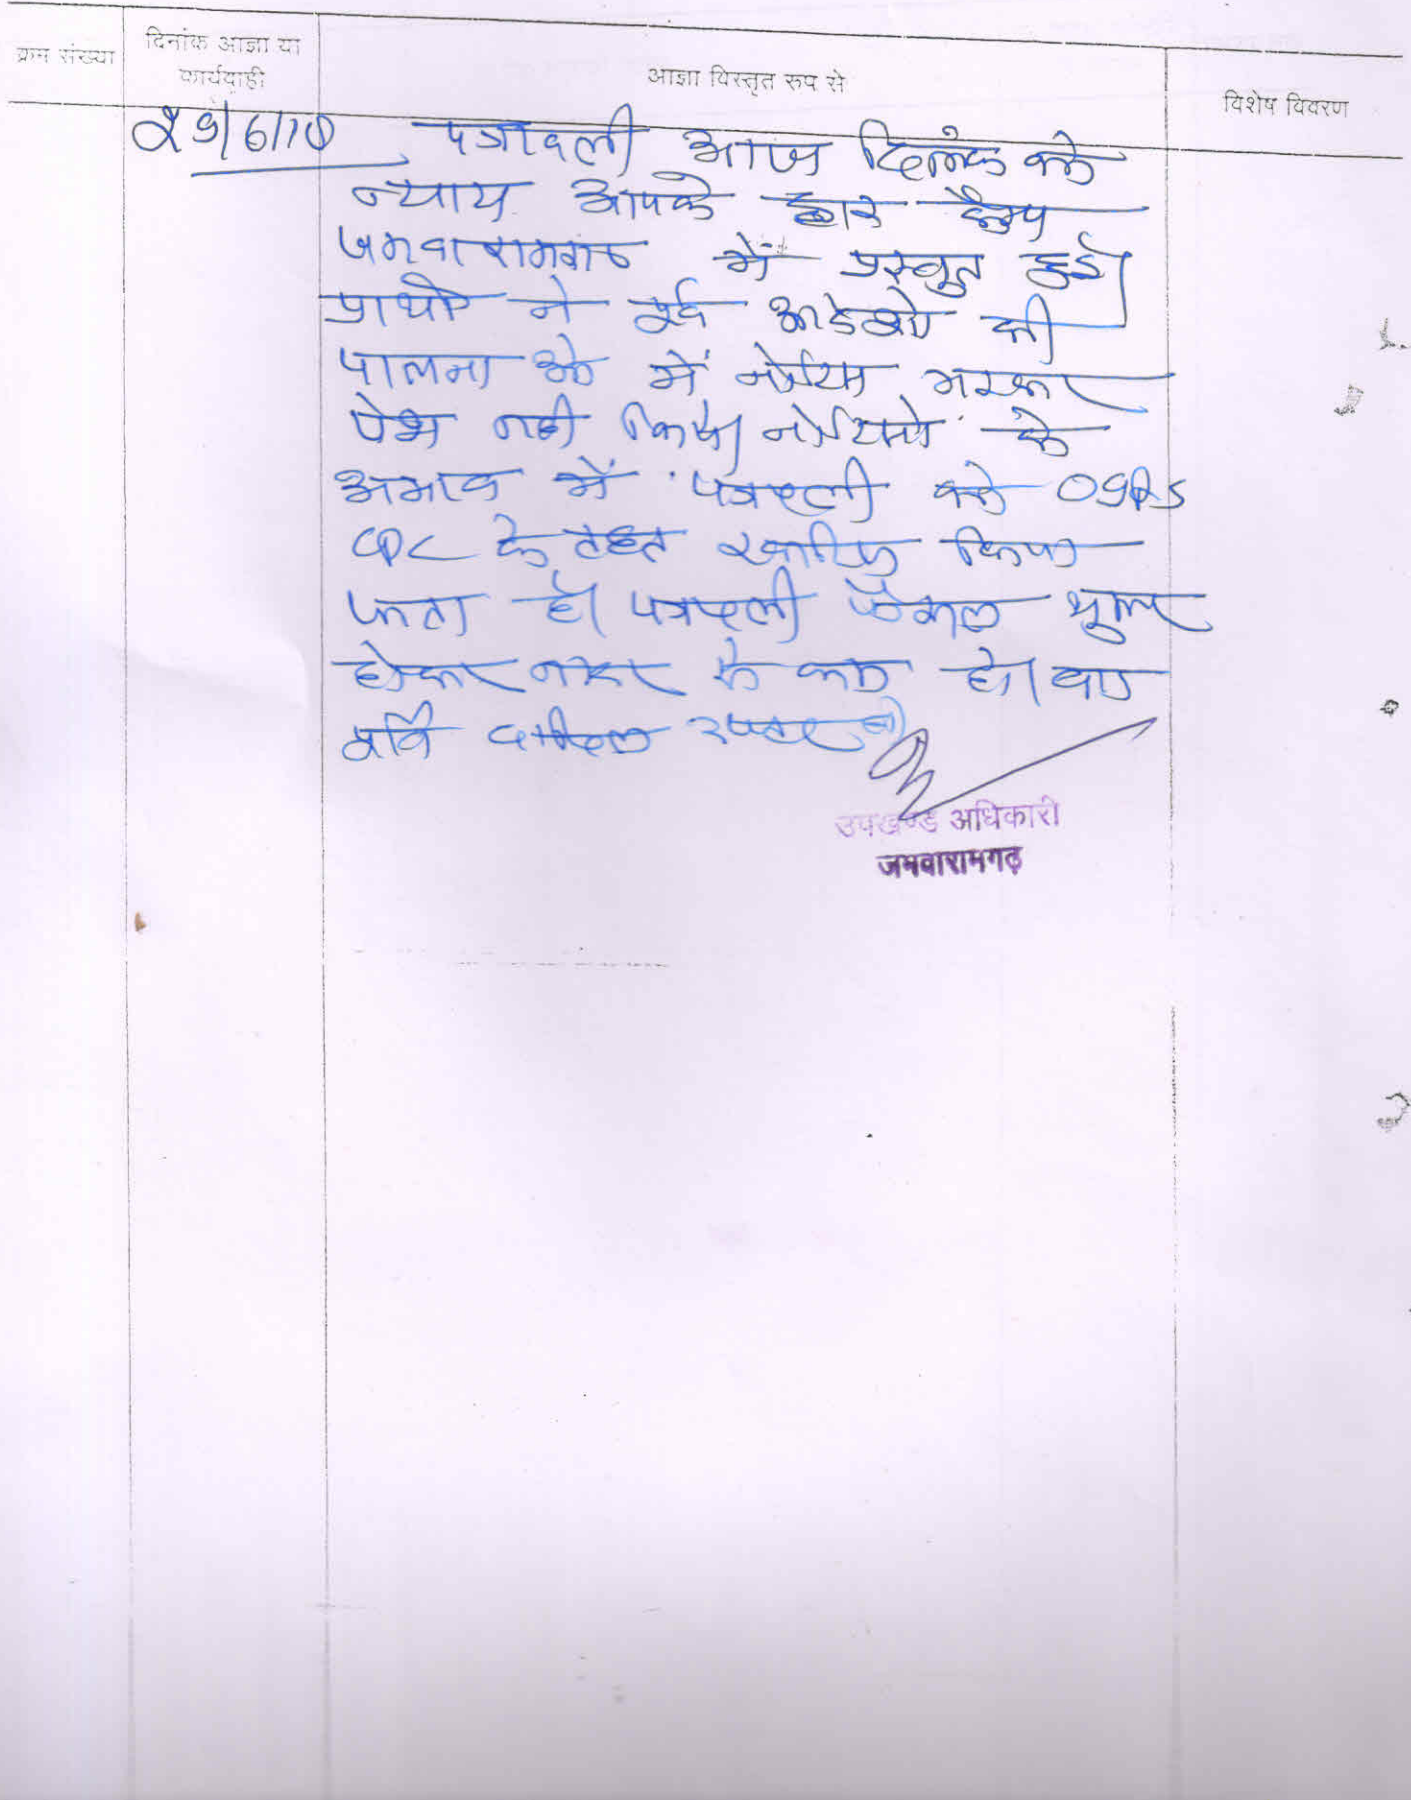 क्रम संख्या
दिनांक आज्ञा या
कार्यवाही
आज्ञा विस्तृत रूप से
विशेष विवरण
पत्रावली आज दिनांक को
न्याय आपके द्वार कैम्प
जमवारामगढ में प्रस्तुत हुई।
प्रार्थी ने पूर्व आदेशो की
पालना में नोटिस भरकर
पेश नही किये। नोटिसो के
अभाव में पत्रावली को O9R5
CPC के तहत खारिज किया
जाता है। पत्रावली फैसल शुमार
होकर नम्बर से कम हो। बाद
पूर्ति दाखिल दफ्तर हो।
उपखण्ड अधिकारी
जमवारामगढ़